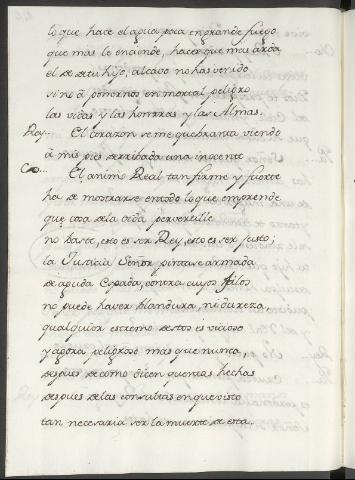 lo que hace el agua poca en grande fuego
que mas le enciende, hacer que mas arda
el de tu hijo, al cavo no has venido
sino á ponernos en mortal peligro
las vidas y las honrras y las Almas.
Rey... El corazon se me quebranta viendo
á mis pies derribada una inocente
Coo... El animo Real tan firme y fuerte
ha de mostrarse en todo lo que emprende
que cosa de la vida pervertille
no baste, esto es ser Rey, esto es ser justo;
la Justicia Señor pintase armada
de aguda Espada, contra cuyos filos
no puede haver blandura, ni dureza,
qualquier estremo destos es vicioso
y agora peligroso mas que nunca,
despues de como dicen quentas hechas
despues de las consultas en que visto
tan necesaria ser la muerte de esta.